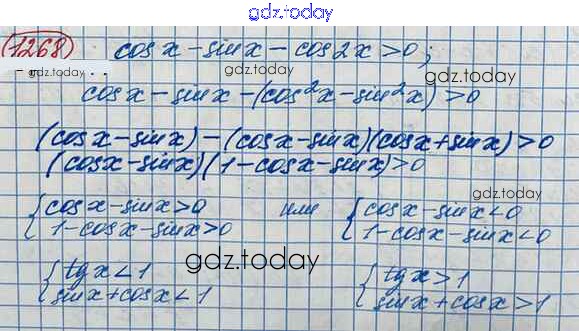 gdz.today
1268 cos x - sin x - cos 2x > 0;
gdz.today
gdz.today
cos x - sin x - (cos²x - sin²x) > 0
(cos x - sin x) - (cos x - sin x)(cos x + sin x) > 0
(cos x - sin x)(1 - cos x - sin x) > 0
gdz.today
{ cos x - sin x > 0 или { cos x - sin x < 0
{ 1 - cos x - sin x > 0 { 1 - cos x - sin x < 0
gdz.today
{ tg x < 1 { tg x > 1
{ sin x + cos x < 1 { sin x + cos x > 1
gdz.today